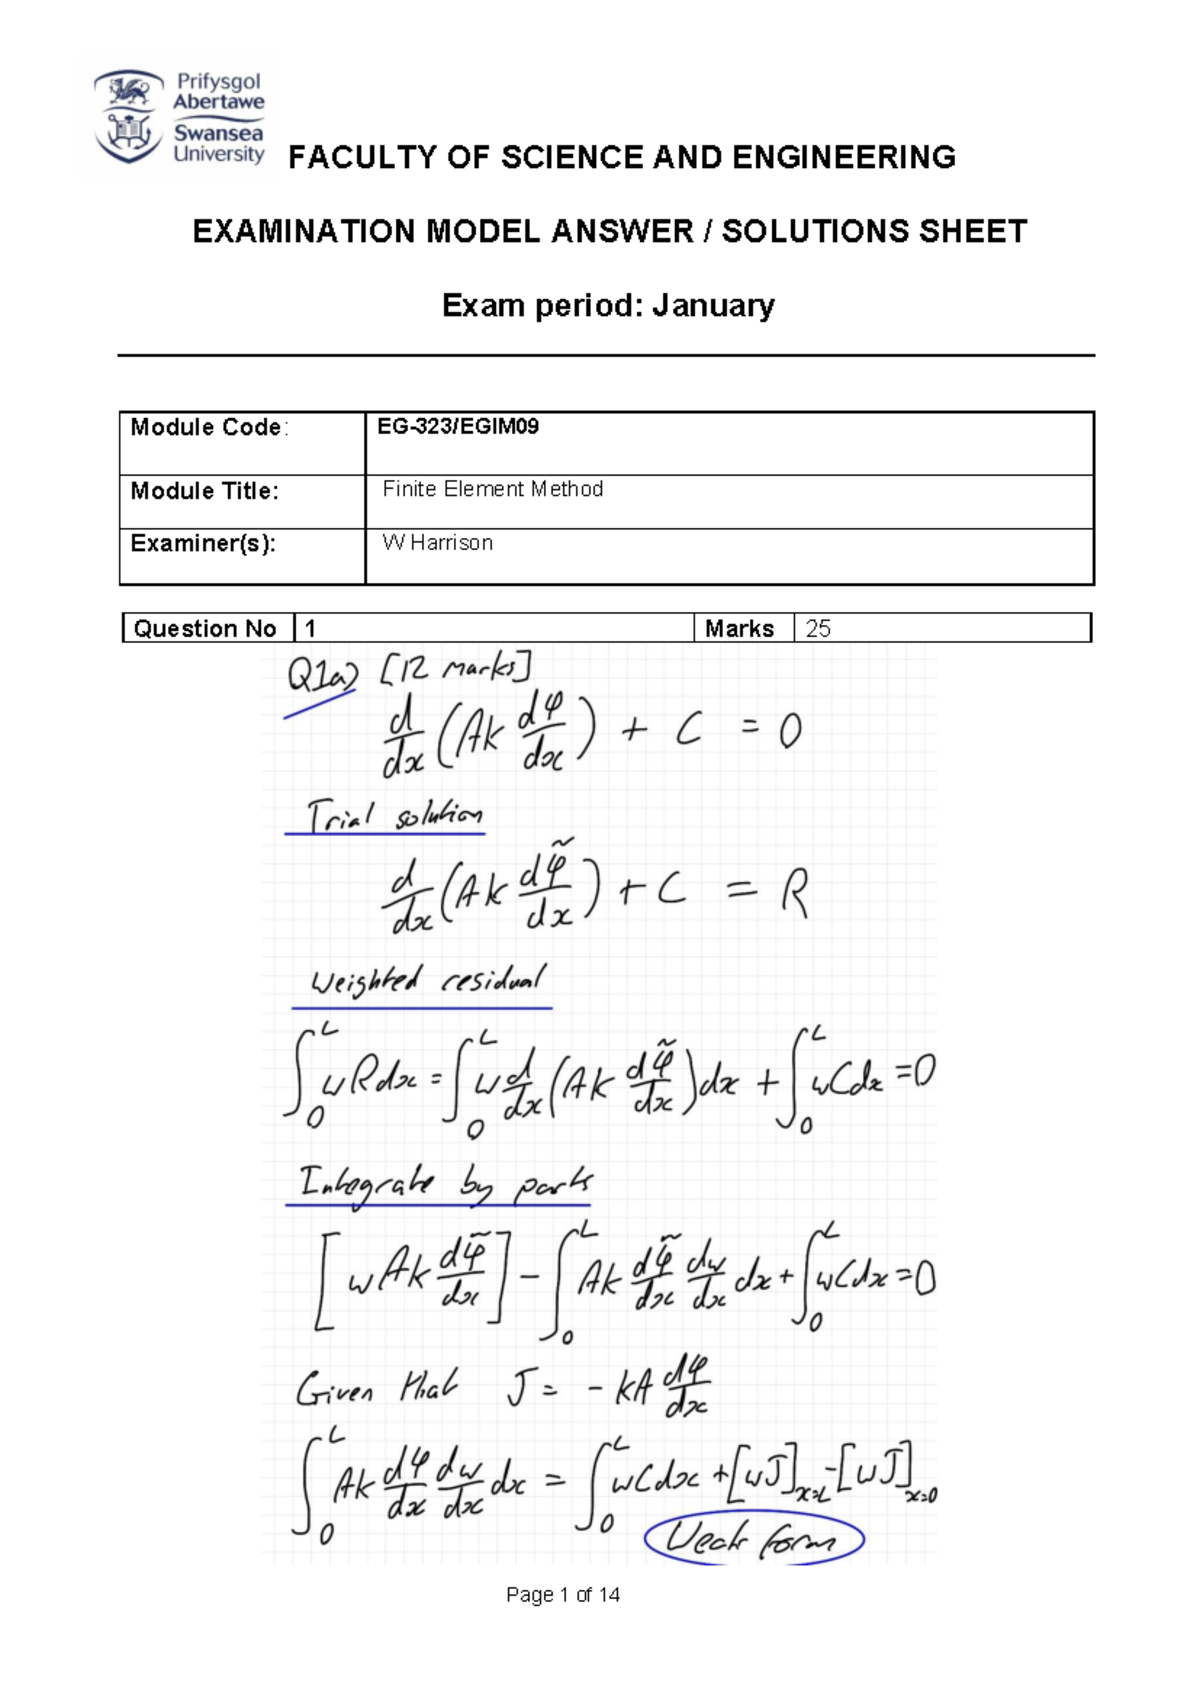 Prifysgol
Abertawe
Swansea
University
FACULTY OF SCIENCE AND ENGINEERING
EXAMINATION MODEL ANSWER / SOLUTIONS SHEET
Exam period: January
Module Code: EG-323/EGIM09
Module Title: Finite Element Method
Examiner(s): W Harrison
Question No 1 Marks 25
Q1a) [12 marks]
d/dx (Ak dφ/dx) + C = 0
Trial solution
d/dx (Ak dφ̃/dx) + C = R
Weighted residual
∫₀ᴸ wRdx = ∫₀ᴸ w d/dx (Ak dφ̃/dx) dx + ∫₀ᴸ wCdx = 0
Integrate by parts
[wAk dφ̃/dx] - ∫₀ᴸ Ak dφ̃/dx dw/dx dx + ∫₀ᴸ wCdx = 0
Given that J = - kA dφ/dx
∫₀ᴸ Ak dφ/dx dw/dx dx = ∫₀ᴸ wCdx + [wJ]x=L - [wJ]x=0
Weak form
Page 1 of 14